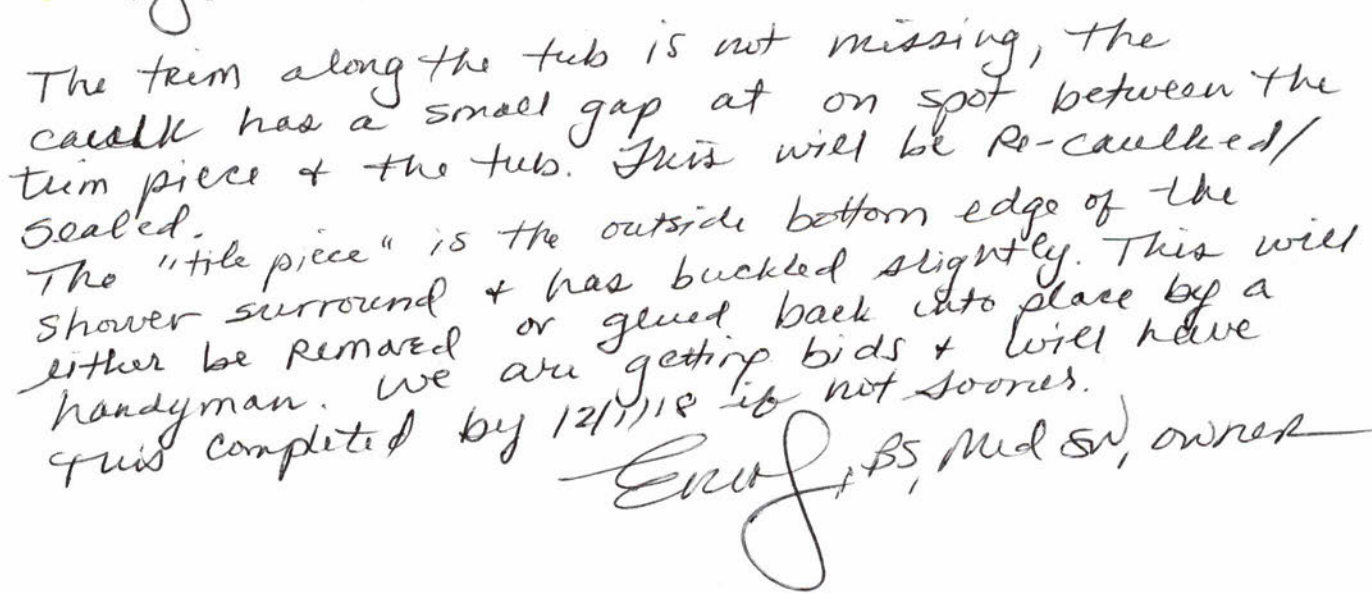 The trim along the tub is not missing, the
caulk has a small gap at on spot between the
trim piece & the tub. This will be Re-caulked/
sealed.
The "tile piece" is the outside bottom edge of the
shower surround & has buckled slightly. This will
either be Removed or glued back into place by a
handyman. We are getting bids & will have
this completed by 12/1/18 if not sooner.
, BS, Med SN, owner